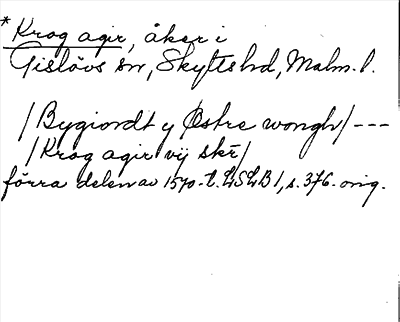 * Krog agir, åker i
Gislövs sn, Skytts hd, Malm. l.
/Bygiordt y Østre wongh/ ---
/Krog agir vij skr/
förra delen av 1570-t. LSLB 1, s. 376. orig.